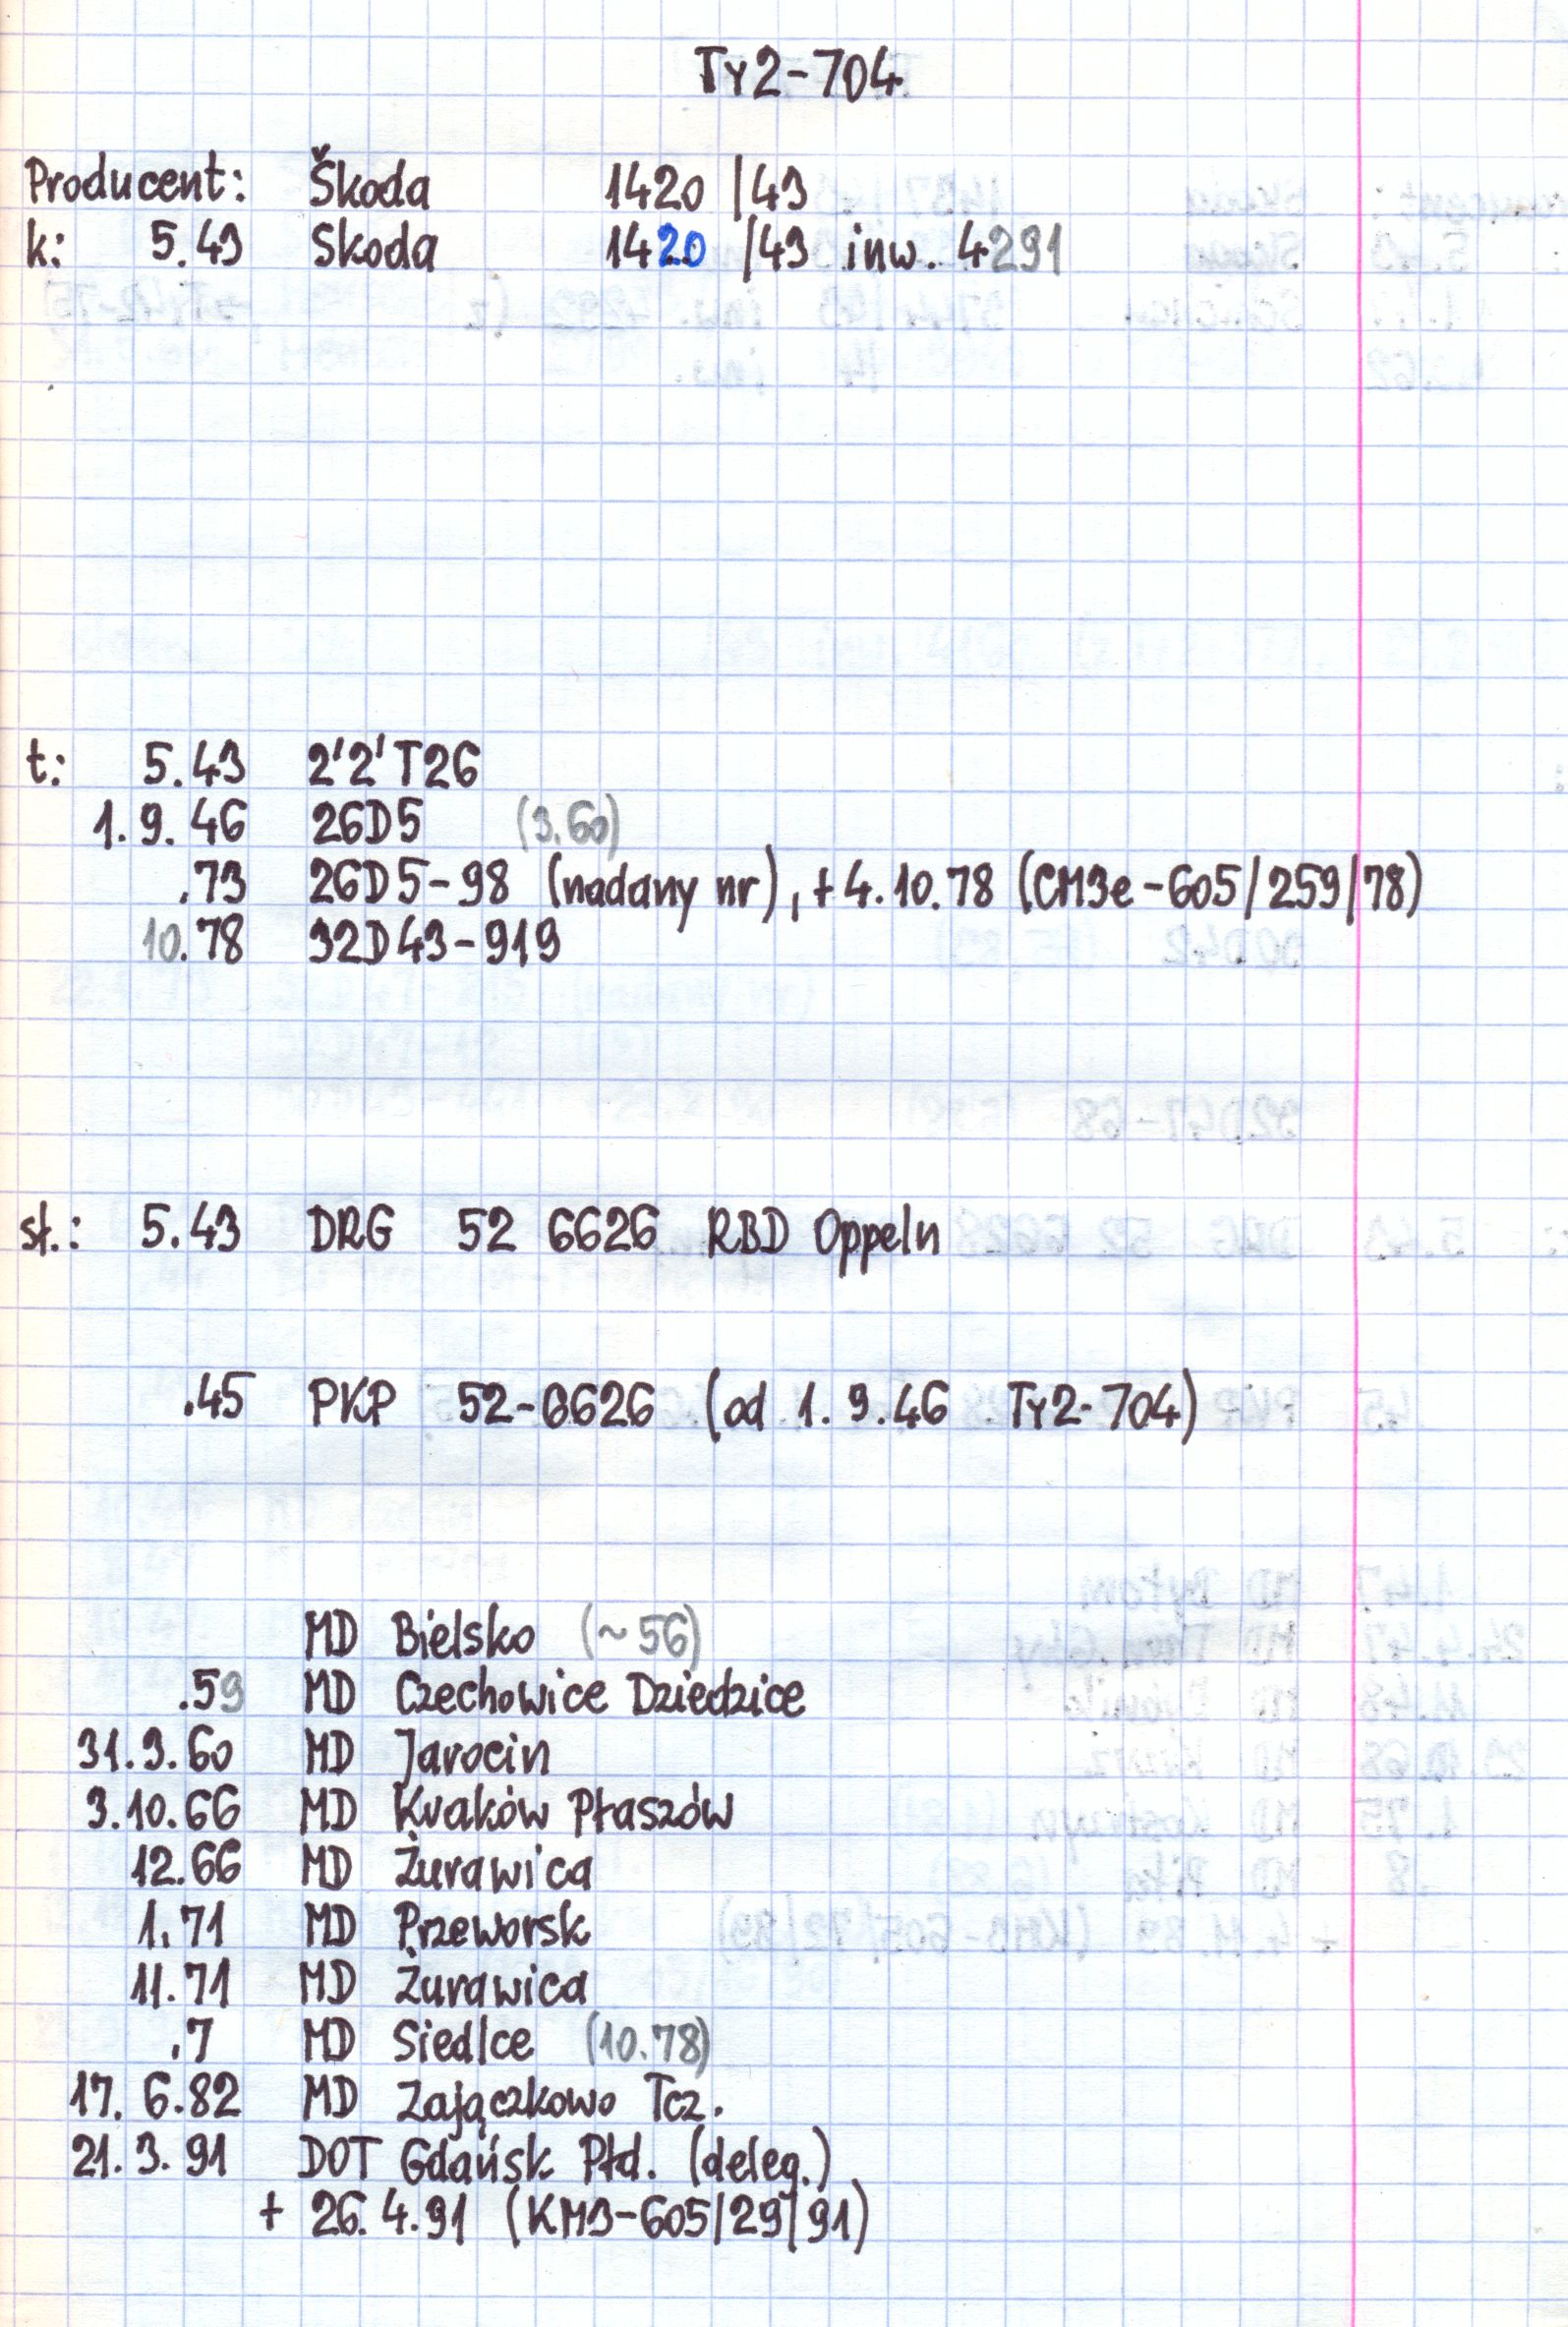 Ty2-704
Producent: Škoda 1420 /43
k: 5.43 Skoda 1420 /43 inw. 4291
t: 5.43 2'2'T26
1.9.46 26D5 (3.60)
.73 26D5-98 (nadany nr), +4.10.78 (CM3e-605/259/78)
10.78 32D43-919
st.: 5.43 DRG 52 6626 RBD Oppeln
.45 PKP 52-6626 (od 1.9.46 Ty2-704)
MD Bielsko (~56)
.59 MD Czechowice Dziedzice
31.3.60 MD Jarocin
3.10.66 MD Kraków Płaszów
12.66 MD Żurawica
1.71 MD Przeworsk
11.71 MD Żurawica
.7 MD Siedlce (10.78)
17.6.82 MD Zajączkowo Tcz.
21.3.91 DOT Gdańsk Płd. (deleg.)
+ 26.4.91 (KM3-605/29/91)